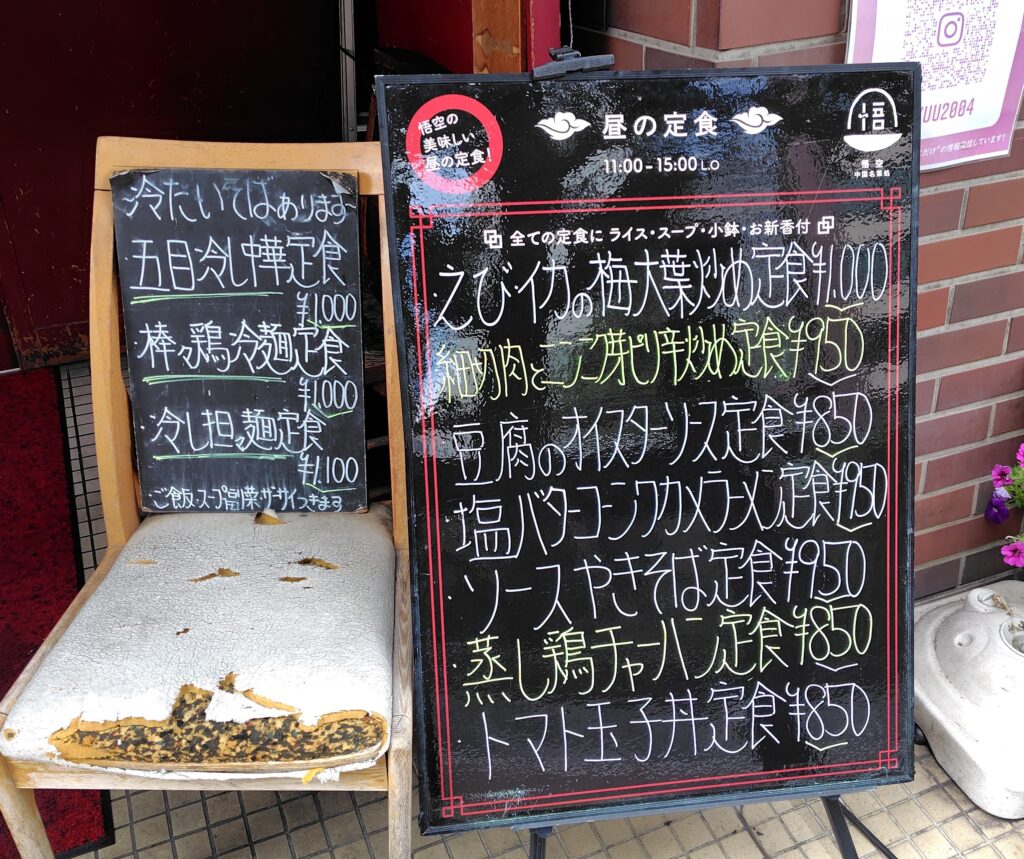 冷たいそばあります
五目冷し中華定食
¥1.000
棒々鶏冷麺定食
¥1.000
冷し担々麺定食
¥1.100
ご飯・スープ・ザーサイつきます
悟空の
美味しい
昼の定食!
昼の定食
11:00-15:00 L.O
悟
悟空
全ての定食に ライス・スープ・小鉢・お新香付
・えび・イカの梅大葉炒め定食¥1.000
・細切肉とニンニク芽ピリ辛炒め定食¥950
・豆腐のオイスターソース定食¥850
・塩バターコーンワカメラーメン定食¥950
・ソースやきそば定食¥950
・蒸し鶏チャーハン定食¥850
・トマト玉子丼定食¥850
UU2004
だけ"の情報発信しています!